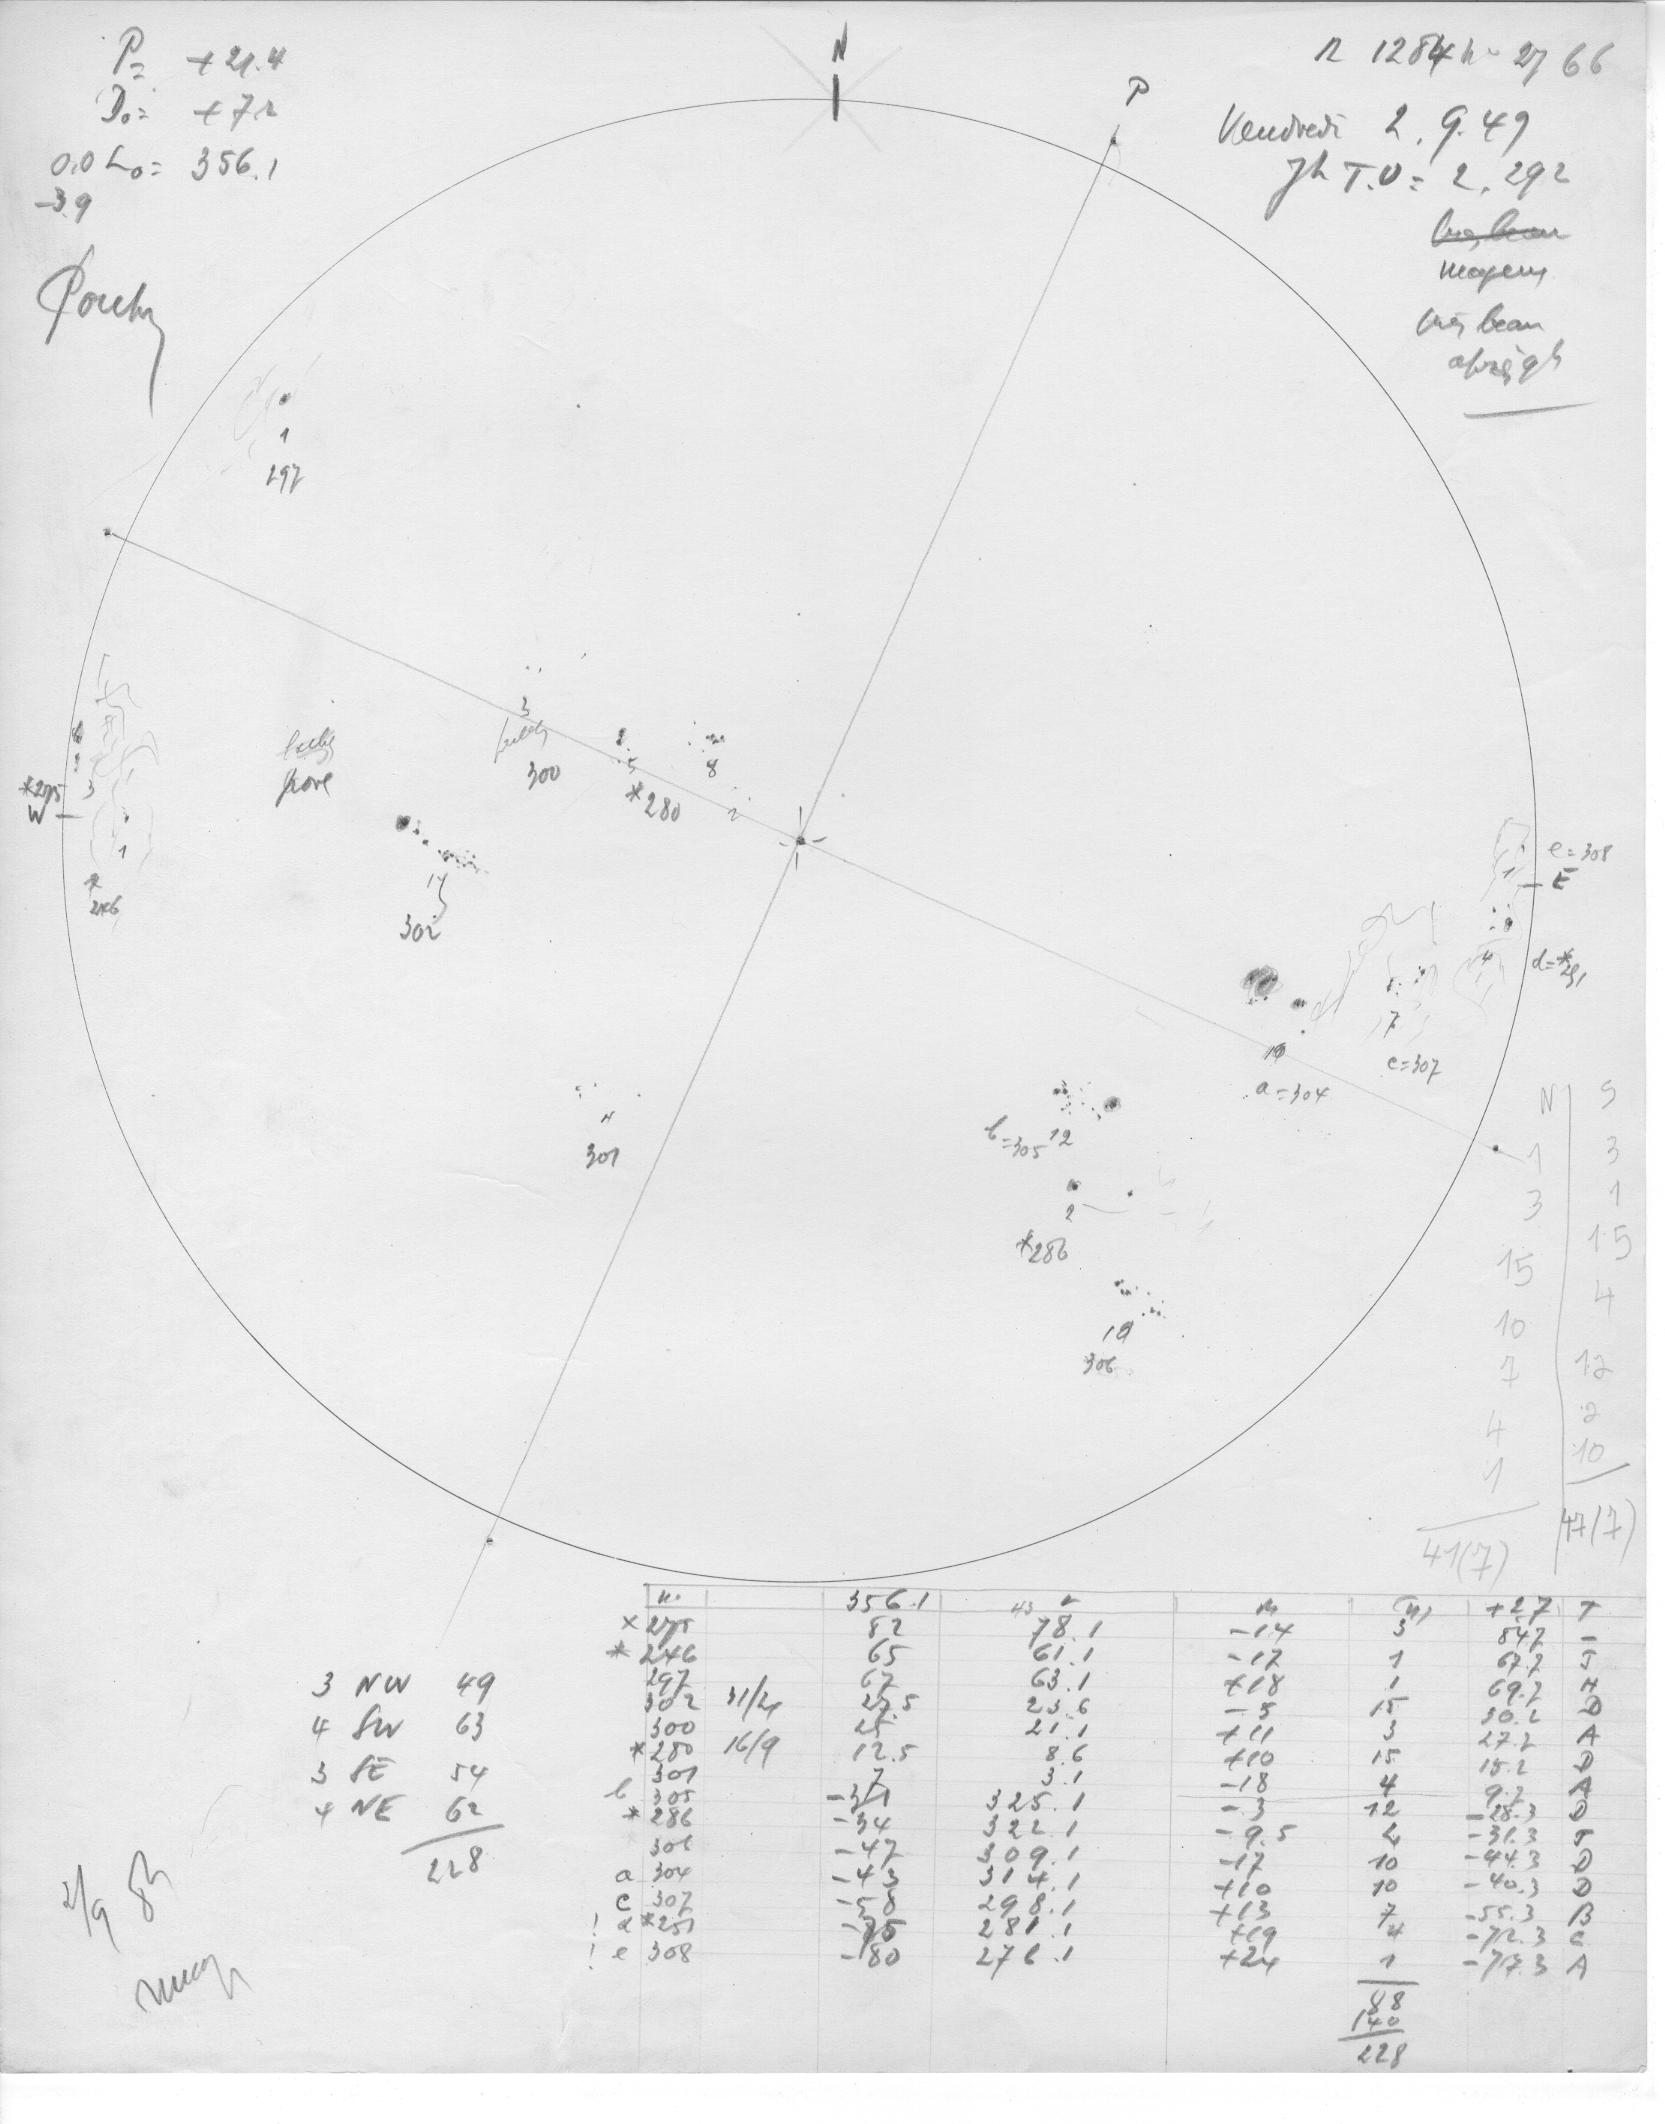 P= +21.4
D₀= +7.2
0.0 L₀= 356.1
-3.9
N
P
Vendredi 2.9.49
7h T.U= 2.292
très beau
moyen
très beau
après 9h
1
297
3
300
5
*280
8
2
3
*275
W
1
*
246
17
302
4
301
e=308
1
E
4
7
c=307
10
a=304
b=305 12
2
*286
10
306
N S
1 3
3 1
15 15
10 4
7 12
4 2
1 10
41(7) 47(7)
3 NW 49
4 SW 63
3 SE 54
4 NE 62
228
2/9 8h
moy
n. 356.1 L
×275 82 78.1 -14 3 84.7 -
*246 65 61.1 -17 1 67.7 J
297 67 63.1 +18 1 69.7 H
302 27.5 23.6 -5 15 30.2 D
300 25 21.1 +11 3 27.7 A
*280 16/9 12.5 8.6 +10 15 15.2 D
301 7 3.1 -18 4 9.7 A
b 305 -31 325.1 -3 12 -28.3 D
*286 -34 322.1 -9.5 2 -31.3 J
306 -47 309.1 -17 10 -44.3 D
a 304 -43 314.1 +10 10 -40.3 D
c 307 -58 298.1 +13 7 -55.3 B
! d *291 -75 281.1 +19 4 -72.3 C
! e 308 -80 276.1 +24 1 -77.3 A
88
140
228